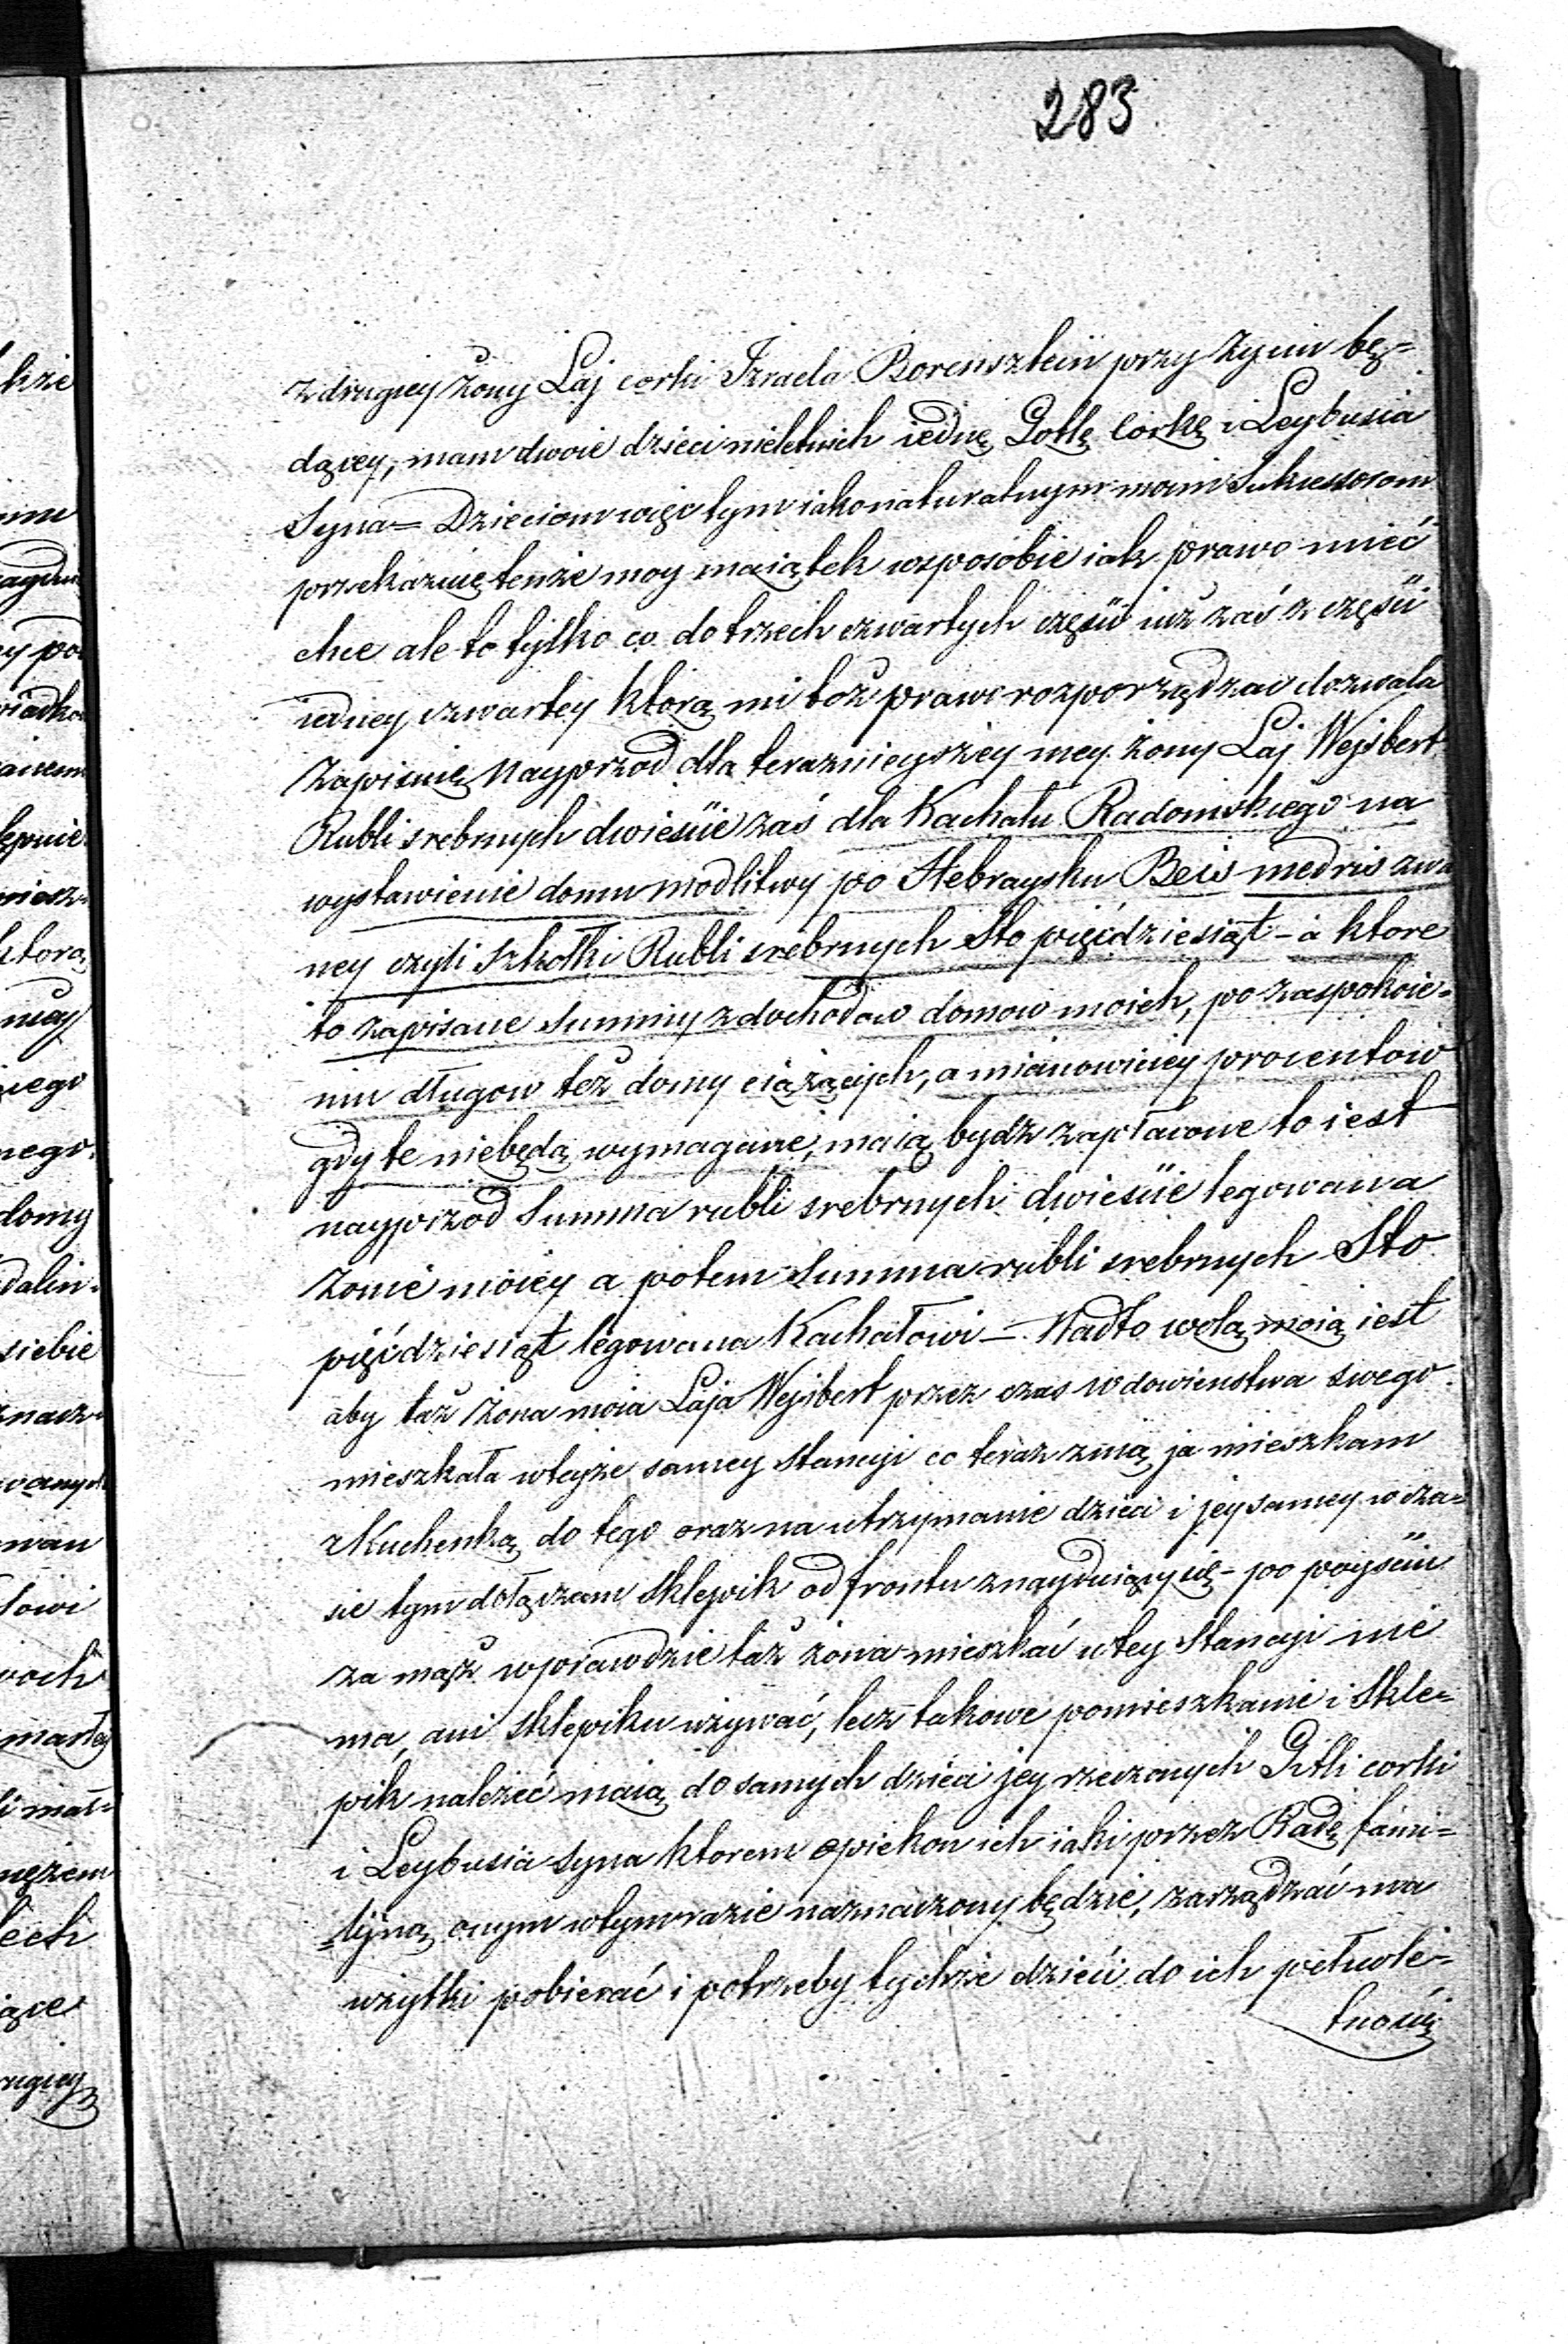 283
z drugiey żony Laj corki Izraela Borensztein przy życiu bę=
dącey, mam dwoie dzieci nieletnich iednę Gotlę Corkę i Leybusia
Syna = Dzieciom więc tym iako naturalnym moim Sukcessorom
przekazuię tenże moy maiątek w sposobie iak prawo mieć
chce ale to tylko co do trzech czwartych części iuż zaś z części
iedney czwartey ktorą mi toż prawo rozporządzac dozwala
Zapisuię Nayprzod dla teraznieyszey mey żony Laj Wejsbert
Rubli srebrnych dwieście zaś dla Kachału Radomskiego na
wystawienie domu modlitwy po Hebraysku Beis medris zwa
ney czyli Szkołki Rubli srebrnych Sto pięćdziesiąt - a ktore
to zapisane Summy z dochodow domow moich, po zaspokoie=
niu długow też domy ciążących, a mianowiciey procentow
gdy te niebędą wymagane, maią bydz zapłacone to iest
nayprzod Summa rubli srebrnych dwieście legowana
Zonie moiey a potem Summa rubli srebrnych Sto
pięćdziesiąt legowana Kachałowi - Nadto wolą moią iest
aby taż żona moia Laja Wejsbert przez czas wdowienstwa swego
mieszkała w teyże samey Stancyi co teraz zmą ja mieszkam
z Kuchenką do tego oraz na utrzymanie dzieci i jey samey w cza=
sie tym dołączam Sklepik od frontu znayduiący się - po poyściu
za mąż wprawdzie taż żona mieszkać w tey Stancyi nie
ma, ani Sklepiku używać, lecz takowe pomieszkanie i Skle=
pik należeć maią do samych dzieci jey rzeczonych Gitli corki
i Leybusia syna ktorem opiekon ich iaki przez Radę fami=
=lijną onym w tym razie naznaczony będzie, zarządzać ma
użytki pobierać i potrzeby tychże dzieci do ich pełnole=
tności